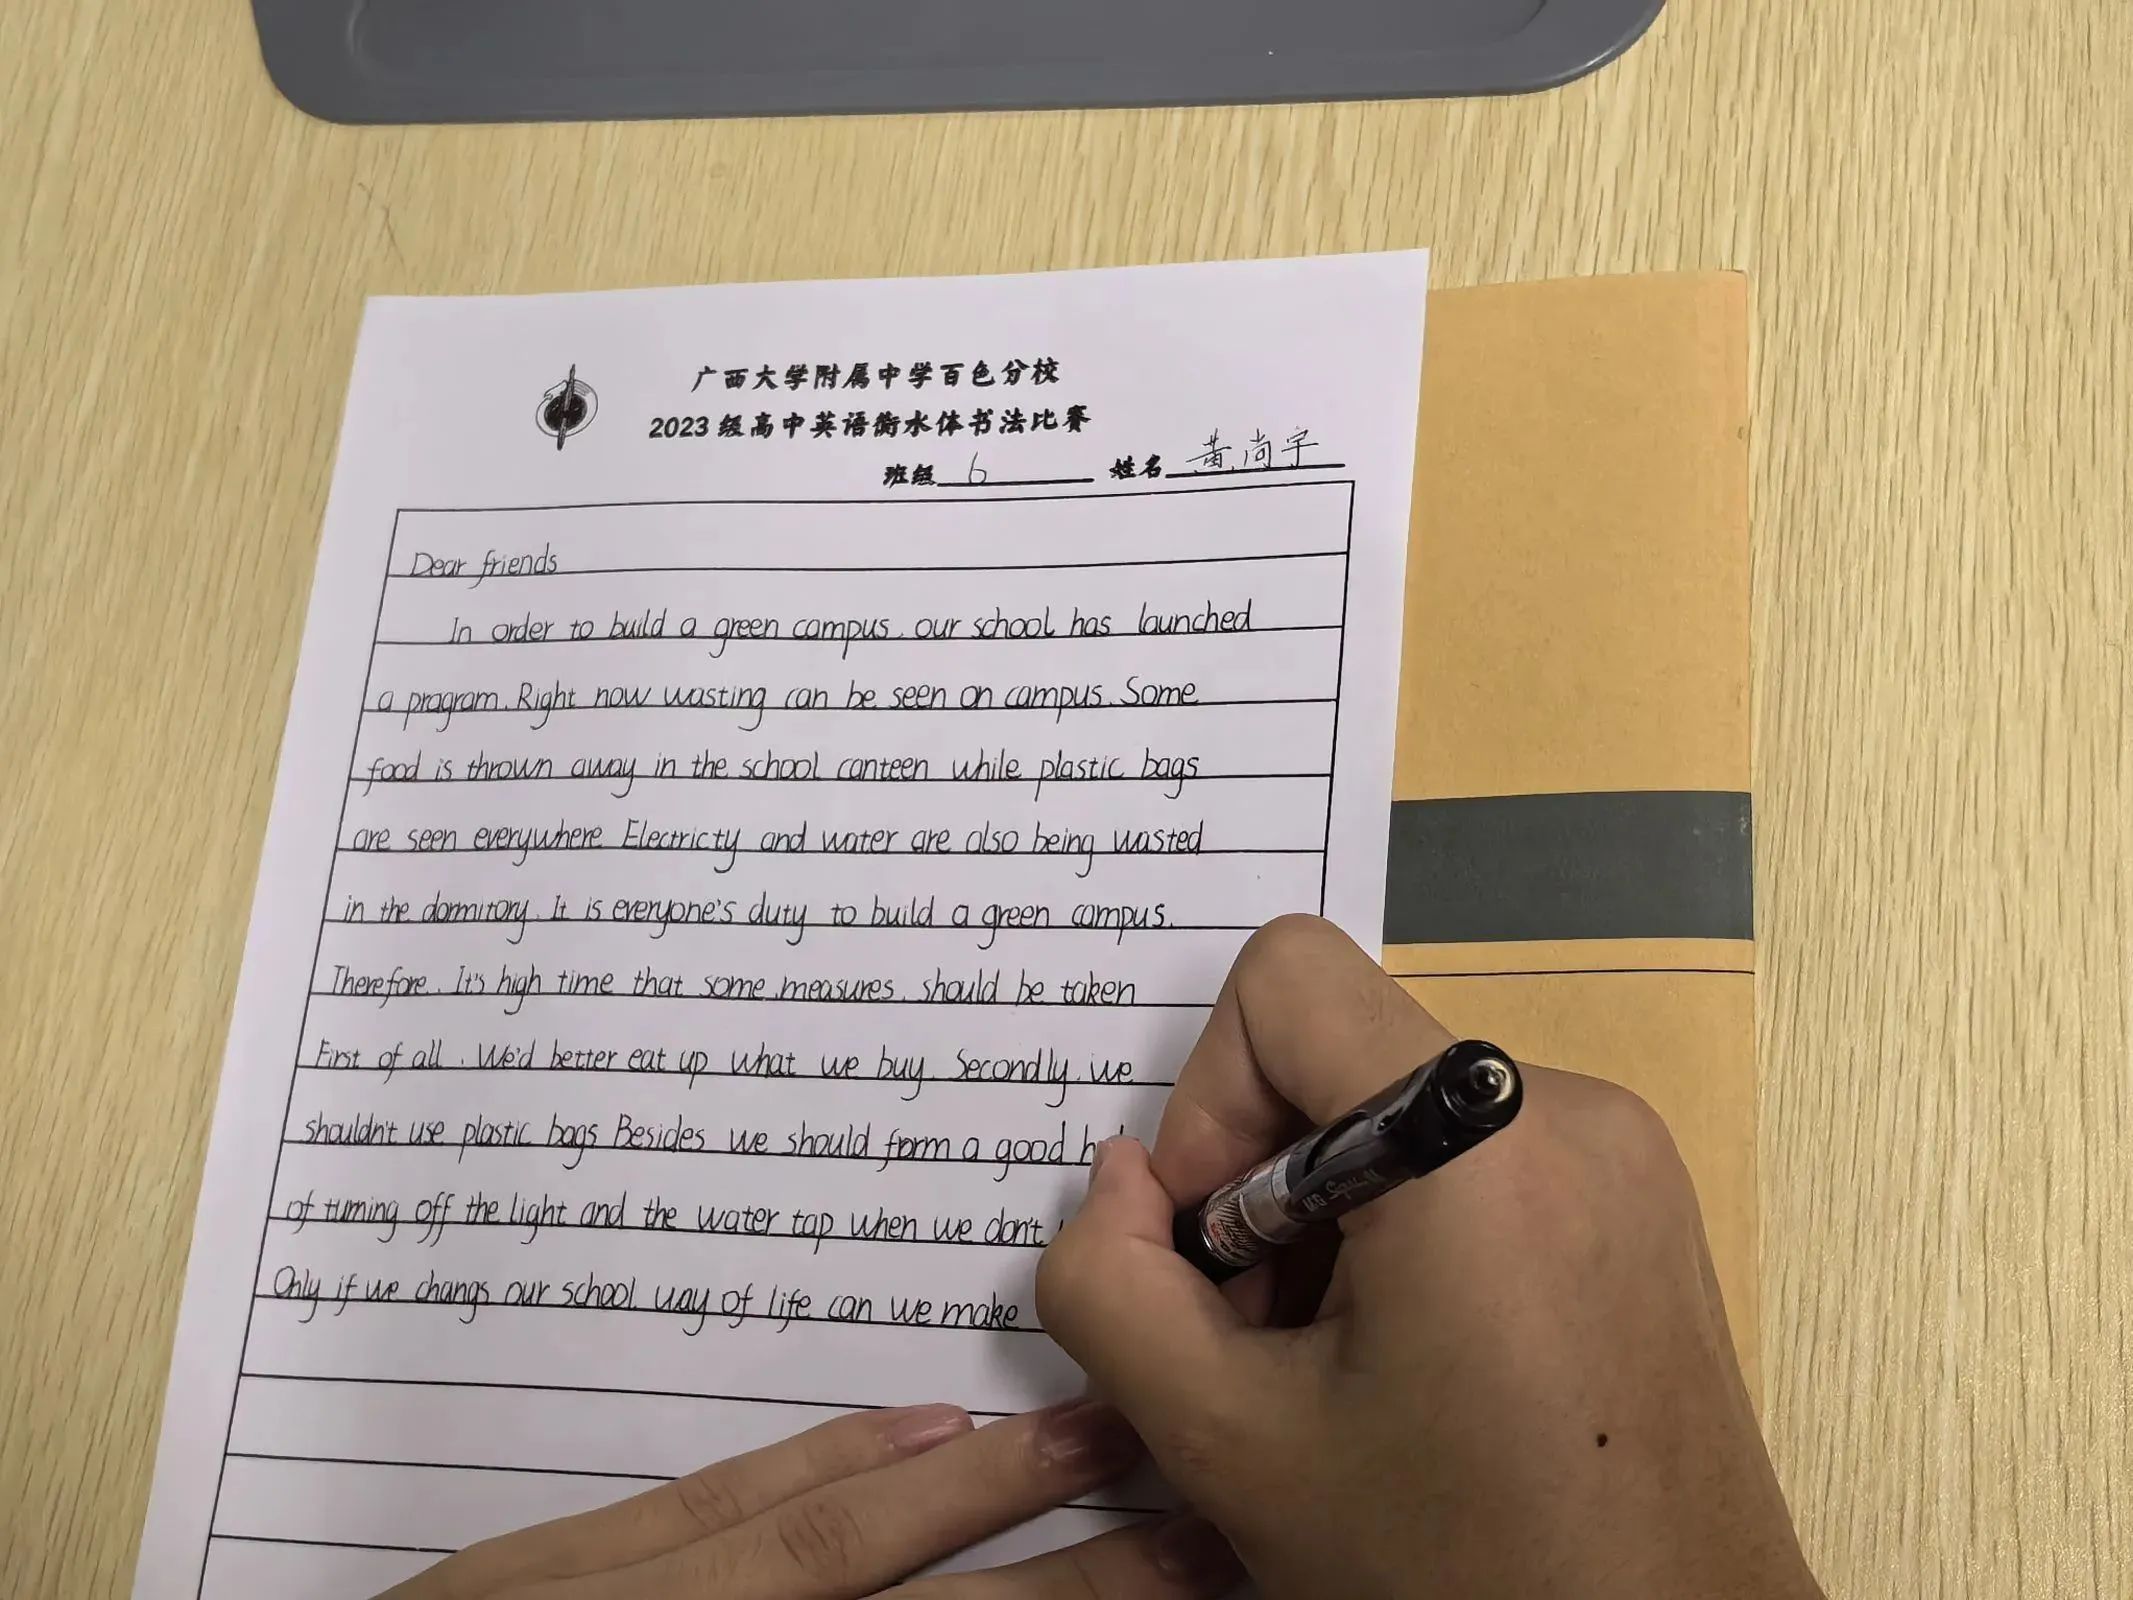 广西大学附属中学百色分校
2023级高中英语衡水体书法比赛
班级 6 姓名 黄尚宇
Dear friends
In order to build a green campus. our school has launched
a program. Right now wasting can be seen on campus. Some
food is thrown away in the school canteen while plastic bags
are seen everywhere Electricty and water are also being wasted
in the dormitory. It is everyone's duty to build a green campus.
Therefore. It's high time that some measures. should be taken
First of all. We'd better eat up what we buy. Secondly. we
shouldn't use plastic bags Besides we should form a good
of turning off the light and the water tap when we don't
Only if we changs our school way of life can we make